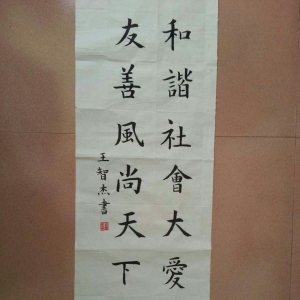 和諧社會大愛
友善風尚天下
王智杰書